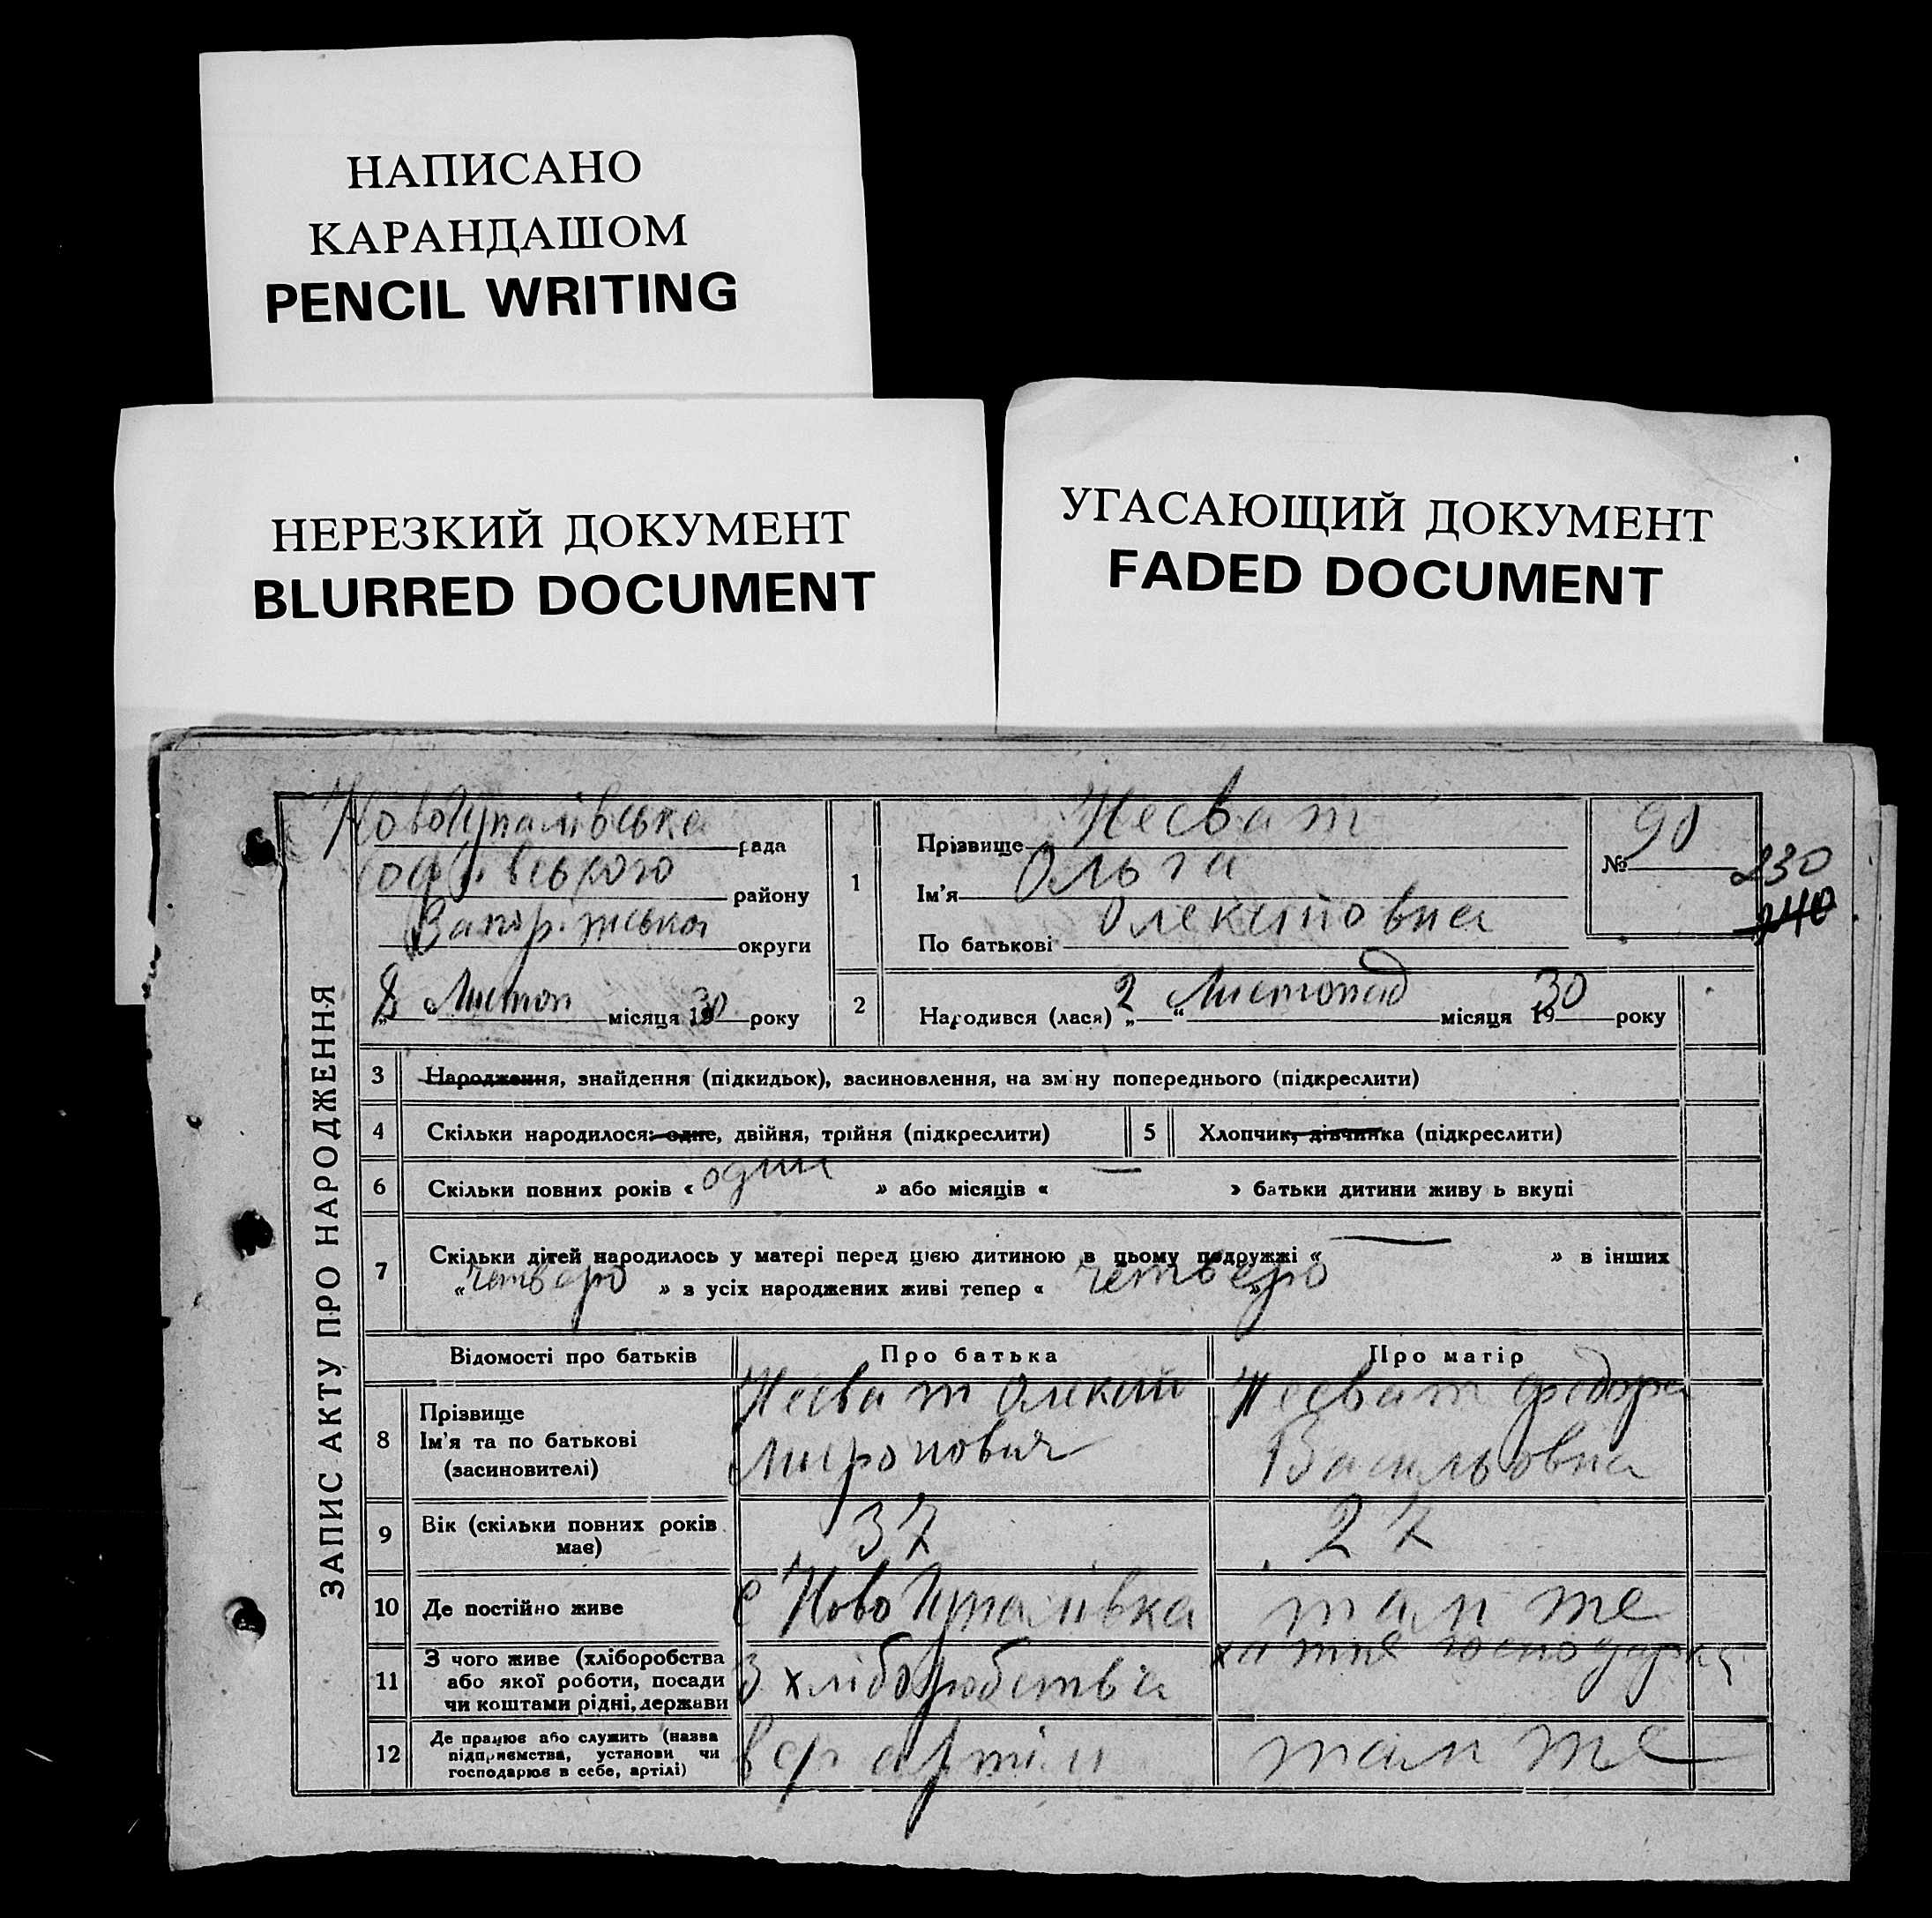 НАПИСАНО
КАРАНДАШОМ
PENCIL WRITING
НЕРЕЗКИЙ ДОКУМЕНТ
BLURRED DOCUMENT
УГАСАЮЩИЙ ДОКУМЕНТ
FADED DOCUMENT
ЗАПИС АКТУ ПРО НАРОДЖЕННЯ
НовоГупалівська рада
району
округи
Листоп місяця 1930 року
1
Прізвище Несват
Ім'я Ольга
По батькові Олексіївна
№ 90
230
240
2
Народився (лася) „2“ Листопад місяця 1930 року
3 Народження, знайдення (підкидьок), засиновлення, на зміну попереднього (підкреслити)
4 Скільки народилося: одне, двійня, трійня (підкреслити)
5 Хлопчик, дівчинка (підкреслити)
6 Скільки повних років « один » або місяців « — » батьки дитини живуть вкупі
7 Скільки дітей народилось у матері перед цією дитиною в цьому подружжі « — » в інших
« четверо » з усіх народжених живі тепер « четверо »
Відомості про батьків Про батька Про матір
8 Прізвище
Ім'я та по батькові
(засиновителі)
Несват Олексій
Миронович
Несват Федора
Васильовна
9 Вік (скільки повних років має) 37 27
10 Де постійно живе с НовоГупалівка там же
11 З чого живе (хліборобства
або якої роботи, посади
чи коштами рідні, держави
З хліборобства
хатня господарка
12 Де працює або служить (назва
підприємства, установи чи
господарює в себе, артілі)
в с/г артілі
там же